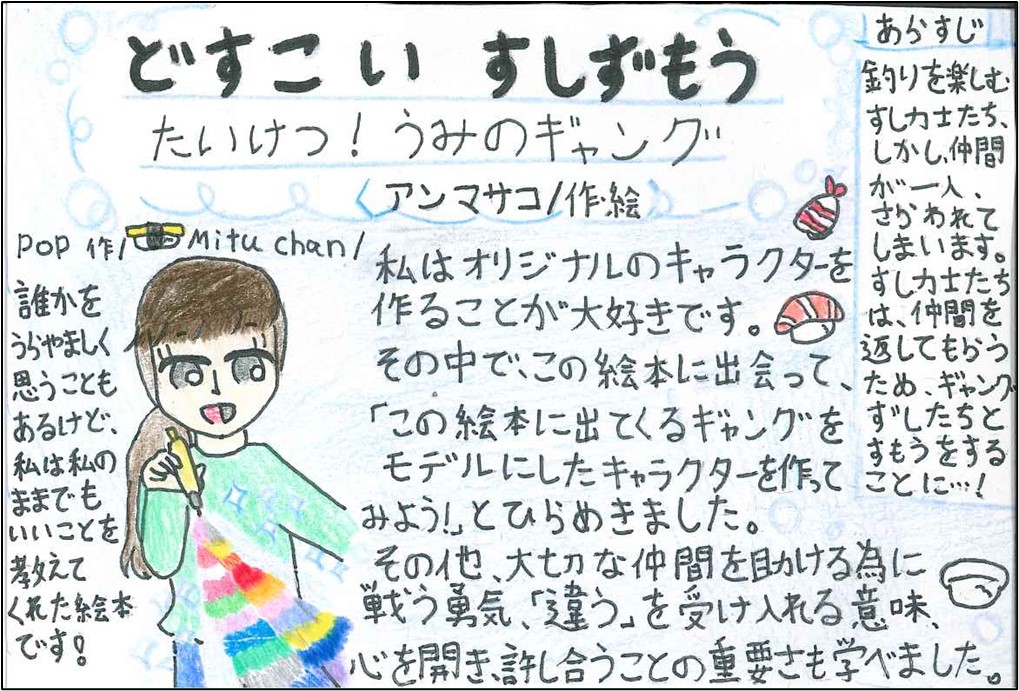 どすこい すしずもう
たいけつ！うみのギャング
アンマサコ/作・絵
pop 作/ Mitu chan/
誰かを
うらやましく
思うことも
あるけど、
私は私の
ままでも
いいことを
教えて
くれた絵本
です！
私はオリジナルのキャラクターを
作ることが大好きです。
その中で、この絵本に出会って、
「この絵本に出てくるギャングを
モデルにしたキャラクターを作って
みよう！」とひらめきました。
その他、大切な仲間を助ける為に
戦う勇気、「違う」を受け入れる意味、
心を開き、許し合うことの重要さも学べました。
あらすじ
釣りを楽しむ
すし力士たち、
しかし、仲間
が一人、
さらわれて
しまいます。
すし力士たち
は、仲間を
返してもらう
ため、ギャング
ずしたちと
すもうをする
ことに…！